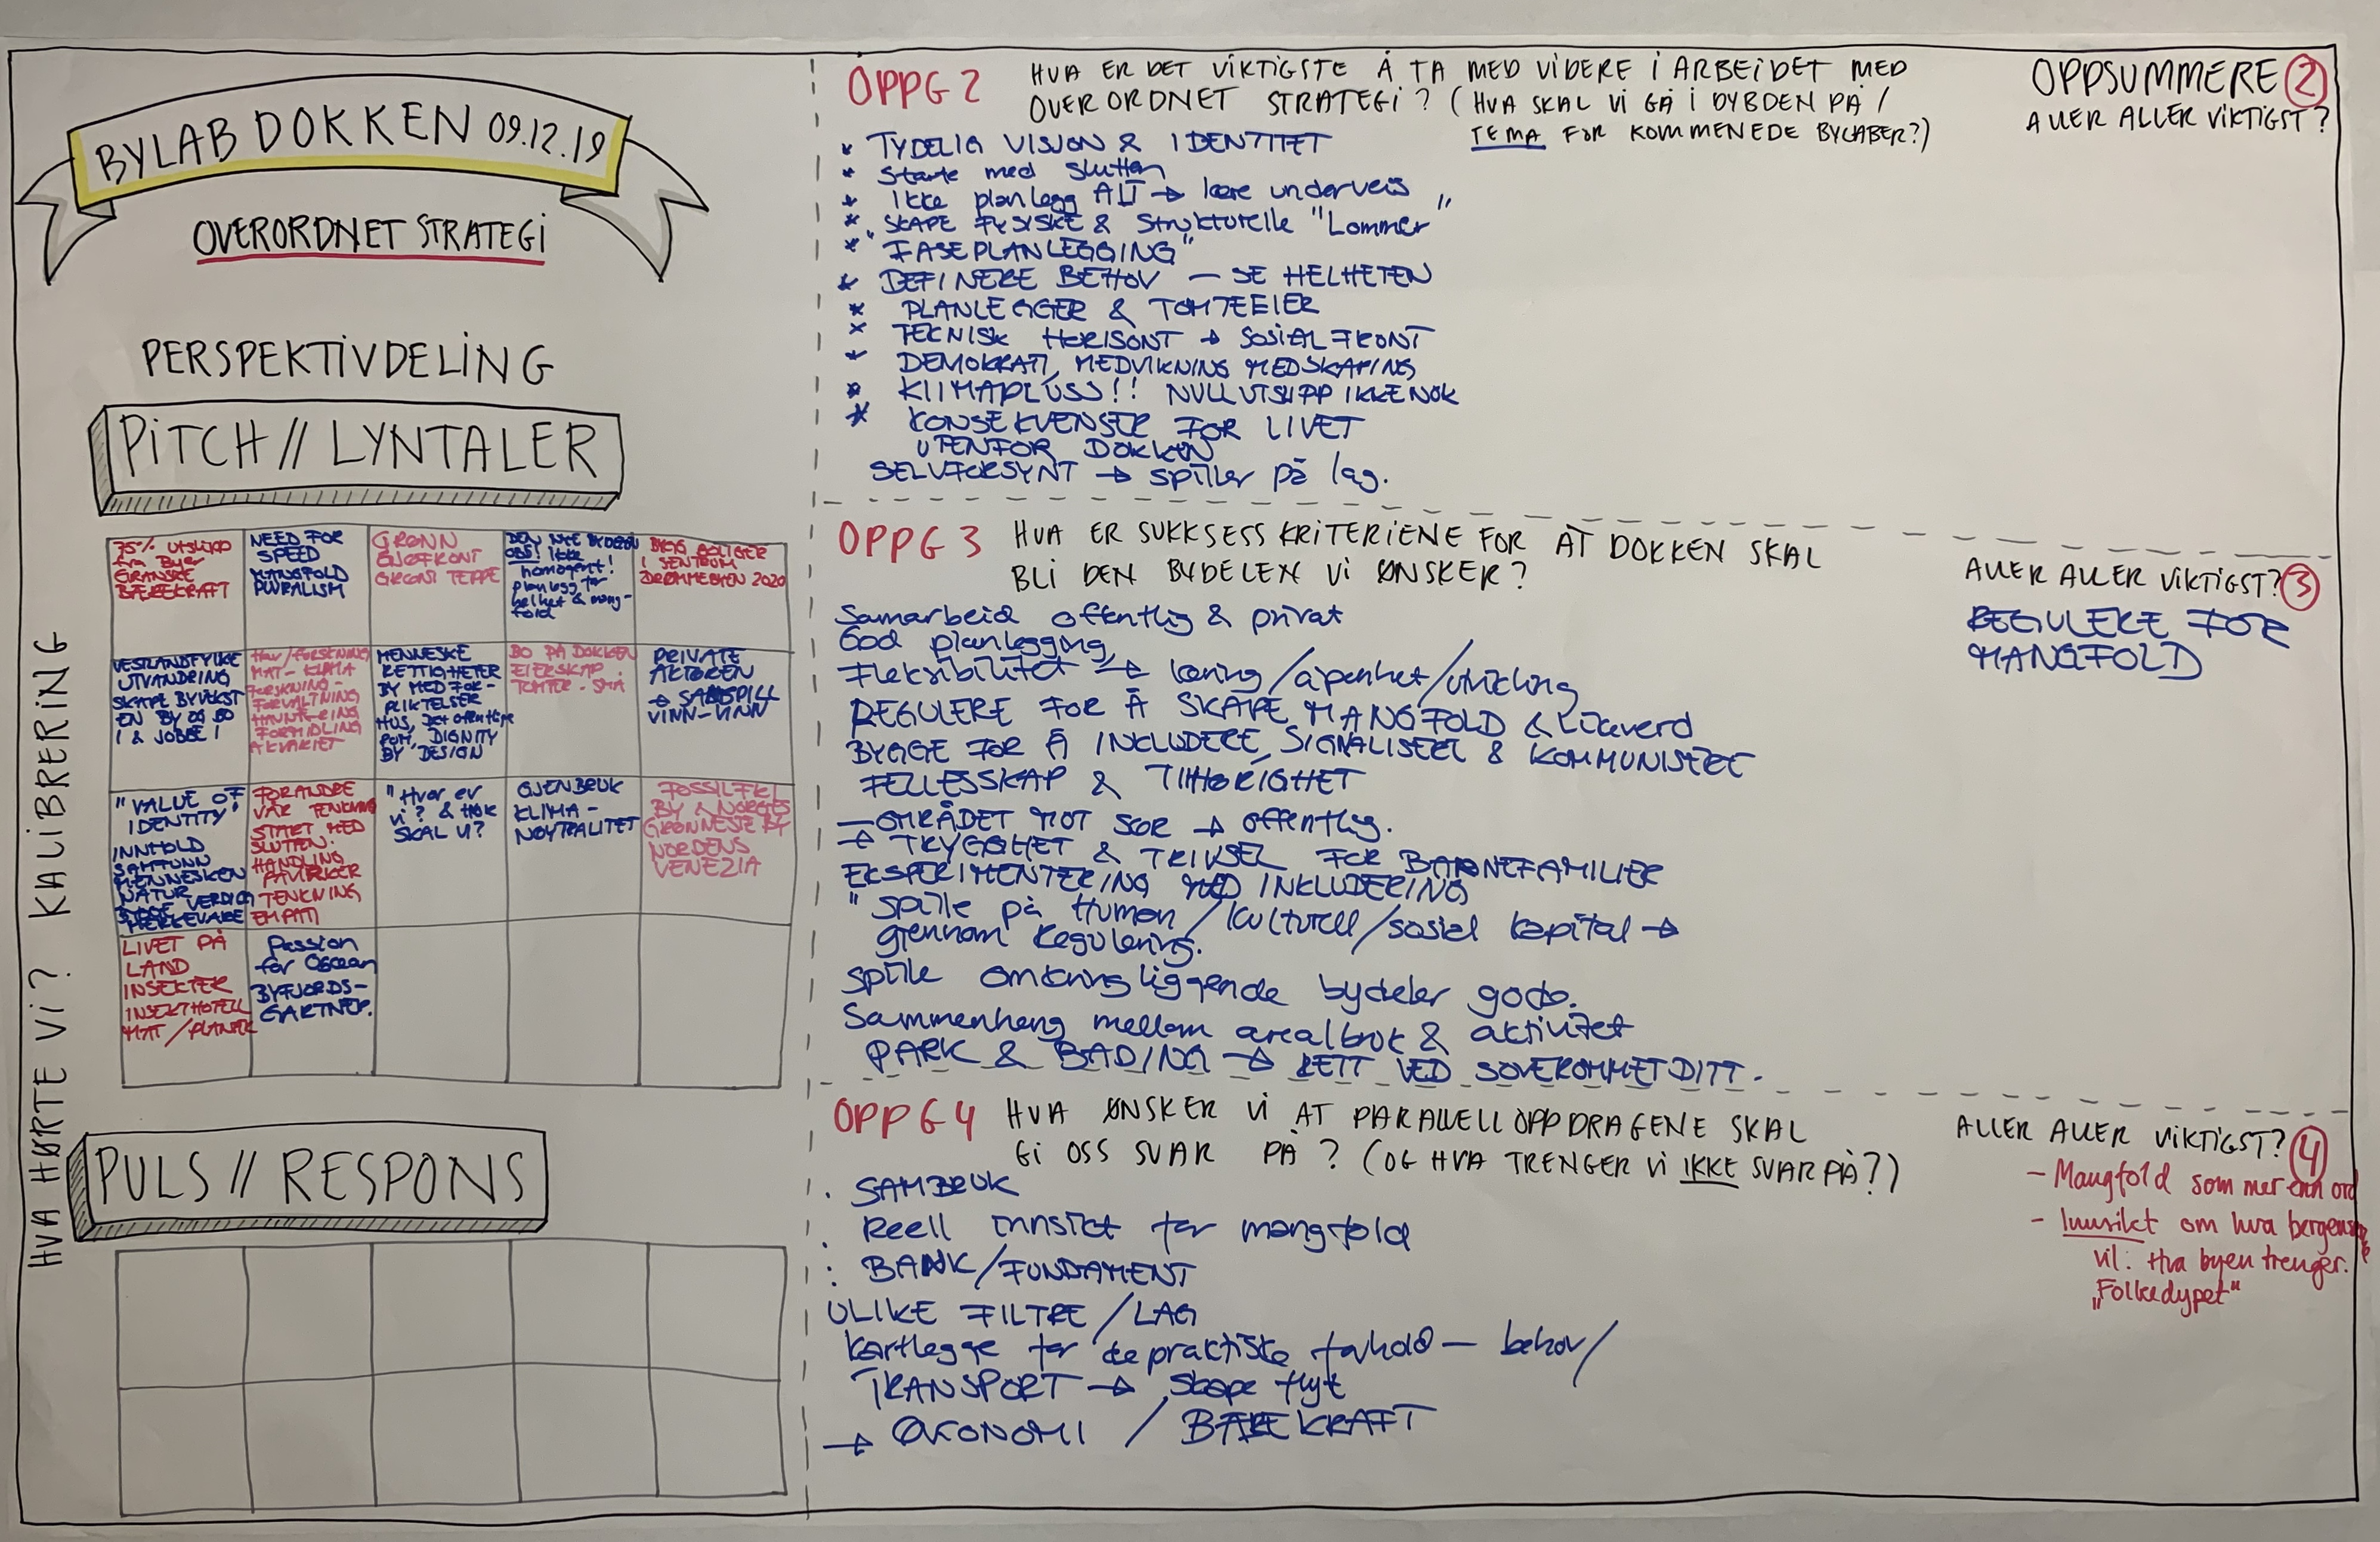 BYLAB DOKKEN 09.12.19
OVERORDNET STRATEGI
PERSPEKTIVDELING
PITCH // LYNTALER
HVA HØRTE VI? KALIBRERING
75% utslipp
fra Byer
GRANSKE
BÆREKRAFT
NEED FOR
SPEED
MANGFOLD
PLURALISM
GRØNN
SJØFRONT
GRØNT TEPPE
DEN NYE BYDELEN
OBS! Ikke
homogent!
planlegg for
helhet & mang-
fold
BYGG BOLIGER
I SENTRUM
DRØMMEBYEN 2020
VESTLANDFYLKE
UTVANDRING
SKAPE BYVEKST
EN BY Å BO
I & JOBBE I
HAV/FORSKNING
MAT-KLIMA
FORSKNING-
FORVALTNING
FORMIDLING
AKVARIET
MENNESKE
RETTIGHETER
BY MED FOR-
PLIKTELSER
HUS, Det offentlige
ROM, DIGNITY
BY DESIGN
BO PÅ DOKKEN
EIERSKAP
TOMTER. SMÅ
PRIVATE
AKTØREN
→ SAMSPILL
VINN-VINN
"VALUE OF
IDENTITY"
INNHOLD
SAMFUNN
MENNESKEN
NATUR
VERDIG
MERKEVARE
FORANDRE
VÅR TENKNING
START MED
SLUTTEN.
HANDLING
PÅVIRKER
TENKNING
EMPATI
"Hvor er
vi? & HVOR
SKAL VI?
GJENBRUK
KLIMA-
NØYTRALITET
FOSSILFRI
BY & NORGES
GRØNNESTE BY
NORDENS
VENEZIA
LIVET PÅ
LAND
INSEKTER
INSEKTHOTELL
MAT/PLANTER
Passion
for Oscean
BYFJORDS-
GARTNER.
PULS // RESPONS
OPPG 2 HVA ER DET VIKTIGSTE Å TA MED VIDERE I ARBEIDET MED
OVERORDNET STRATEGI? (HVA SKAL VI GÅ I DYBDEN PÅ /
TEMA FOR KOMMENEDE BYLABER?)
* TYDELIG VISJON & IDENTITET
* Starte med slutten
* Ikke planlegg ALT → lære underveis
* "SKAPE FYSISKE & Strukturelle "Lommer"
* "FASEPLANLEGGING"
* DEFINERE BEHOV — SE HELHETEN
* PLANLEGGER & TOMTEEIER
* TEKNISK HORISONT → SOSIAL FRONT
* DEMOKRATI, MEDVIKNING MEDSKAPING
* KLIMAPLUSS!! NULLUTSLIPP IKKE NOK
* KONSEKVENSER FOR LIVET
UTENFOR DOKKEN
SELVFORSYNT → spiller på lag.
OPPSUMMERE 2
ALLER ALLER VIKTIGST?
OPPG 3 HVA ER SUKKSESS KRITERIENE FOR AT DOKKEN SKAL
BLI DEN BYDELEN VI ØNSKER?
Samarbeid offentlig & privat
God planlegging
Fleksibilitet → læring/åpenhet/utvikling
REGULERE FOR Å SKAPE MANGFOLD &
BYGGE FOR Å INCLUDERE, SIGNALISERE & KOMMUNISERE
FELLESSKAP & TILHØRIGHET
— OMRÅDET MOT SØR → offentlig.
→ TRYGGHET & TRIVSEL FOR BARNEFAMILIER
EKSPERIMENTERING MED INKLUDERING
"spille på Human/kulturell/sosial kapital →
gjennom Regulering.
spille omkring liggende bydeler gode.
Sammenheng mellom arealbruk & aktivitet
PARK & BADING → RETT VED SOVEROMMET DITT.
ALLER ALLER VIKTIGST? 3
REGULERE FOR
MANGFOLD
OPPG 4 HVA ØNSKER VI AT PARALLELLOPPDRAGENE SKAL
GI OSS SVAR PÅ? (OG HVA TRENGER VI IKKE SVAR PÅ?)
. SAMBRUK
Reell innsikt for mangfold
: BANK/FUNDAMENT
ULIKE FILTRE/LAG
kartlegge for de praktiske forhold — behov/
TRANSPORT → skape flyt
→ ØKONOMI / BÆREKRAFT
ALLER ALLER VIKTIGST? 4
- Mangfold som mer enn ord
- Innsikt om hva bergensere
vil. Hva byen trenger.
"Folkedypet"